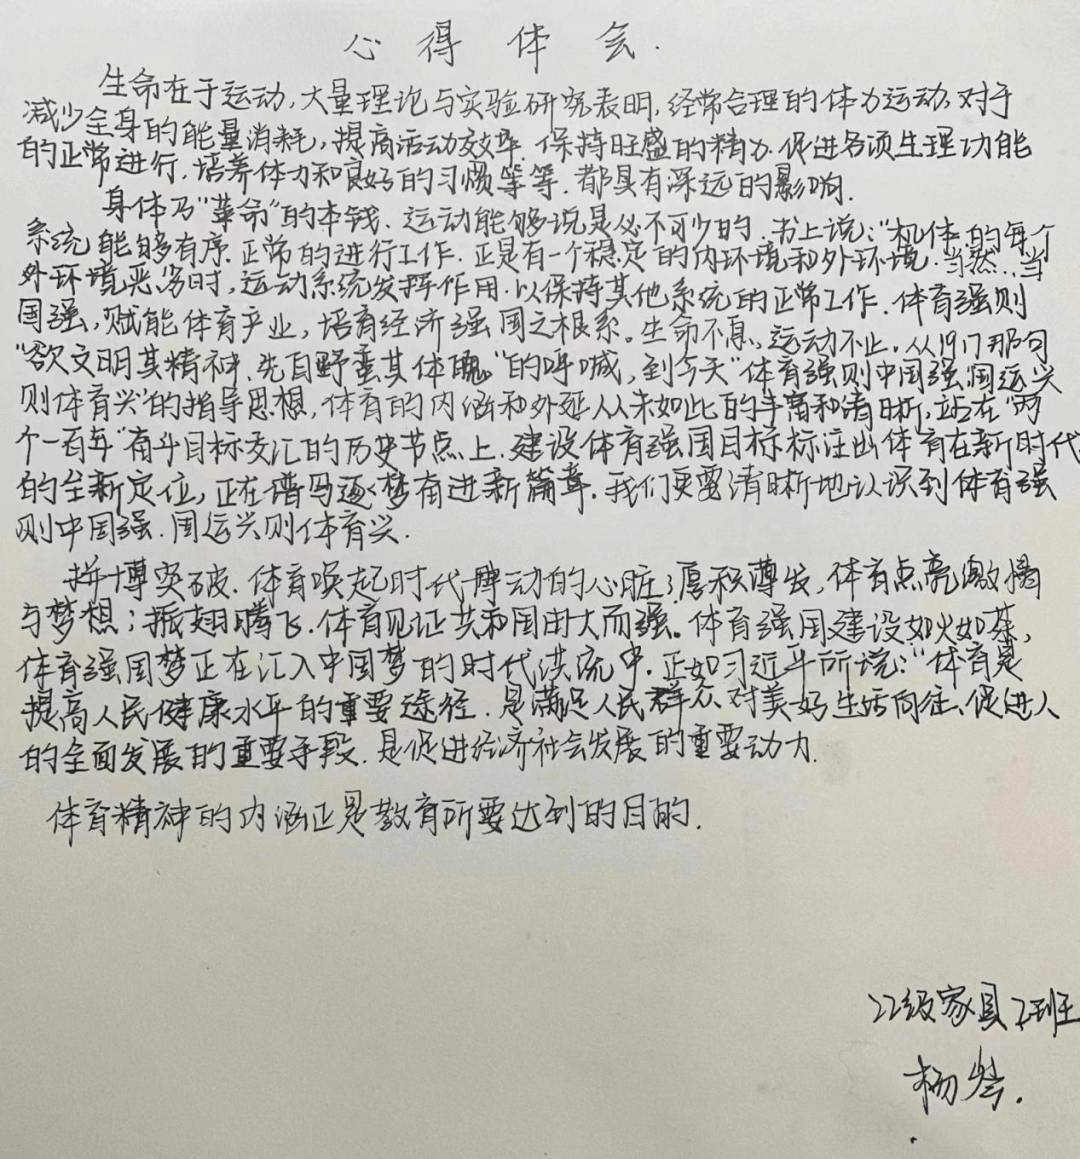 心得体会.
生命在于运动,大量理论与实验研究表明,经常合理的体力运动,对于
减少全身的能量消耗,提高活动效率.保持旺盛的精力.促进各项生理功能
的正常进行.培养体力和良好的习惯等等.都具有深远的影响.
身体乃"革命"的本钱.运动能够说是必不可少的.书上说:"机体的每个
系统能够有序.正常的进行工作.正是有一个稳定的内环境和外环境.当然,当
外环境恶劣时,运动系统发挥作用.以保持其他系统的正常工作.体育强则
国强,赋能体育产业,培育经济强国之根系。生命不息,运动不止.从1917那句
"欲文明其精神.先自野蛮其体魄"的呼喊,到今天"体育强则中国强,国运兴
则体育兴"的指导思想,体育的内涵和外延从未如此的丰富和清晰,站在"两
个一百年"奋斗目标交汇的历史节点上.建设体育强国目标标注出体育在新时代
的全新定位,正在谱写逐梦奋进新篇章.我们更要清晰地认识到体育强
则中国强.国运兴则体育兴.
拼博突破.体育唤起时代脾动的心脏;厚积薄发,体育点亮激情
与梦想;振翅腾飞.体育见证共和国由大而强。体育强国建设如火如荼,
体育强国梦正在汇入中国梦的时代洪流中.正如习近平所说:"体育是
提高人民健康水平的重要途径.是满足人民群众对美好生活向往、促进人
的全面发展的重要手段.是促进经济社会发展的重要动力.
体育精神的内涵正是教育所要达到的目的.
22级家具2班
杨